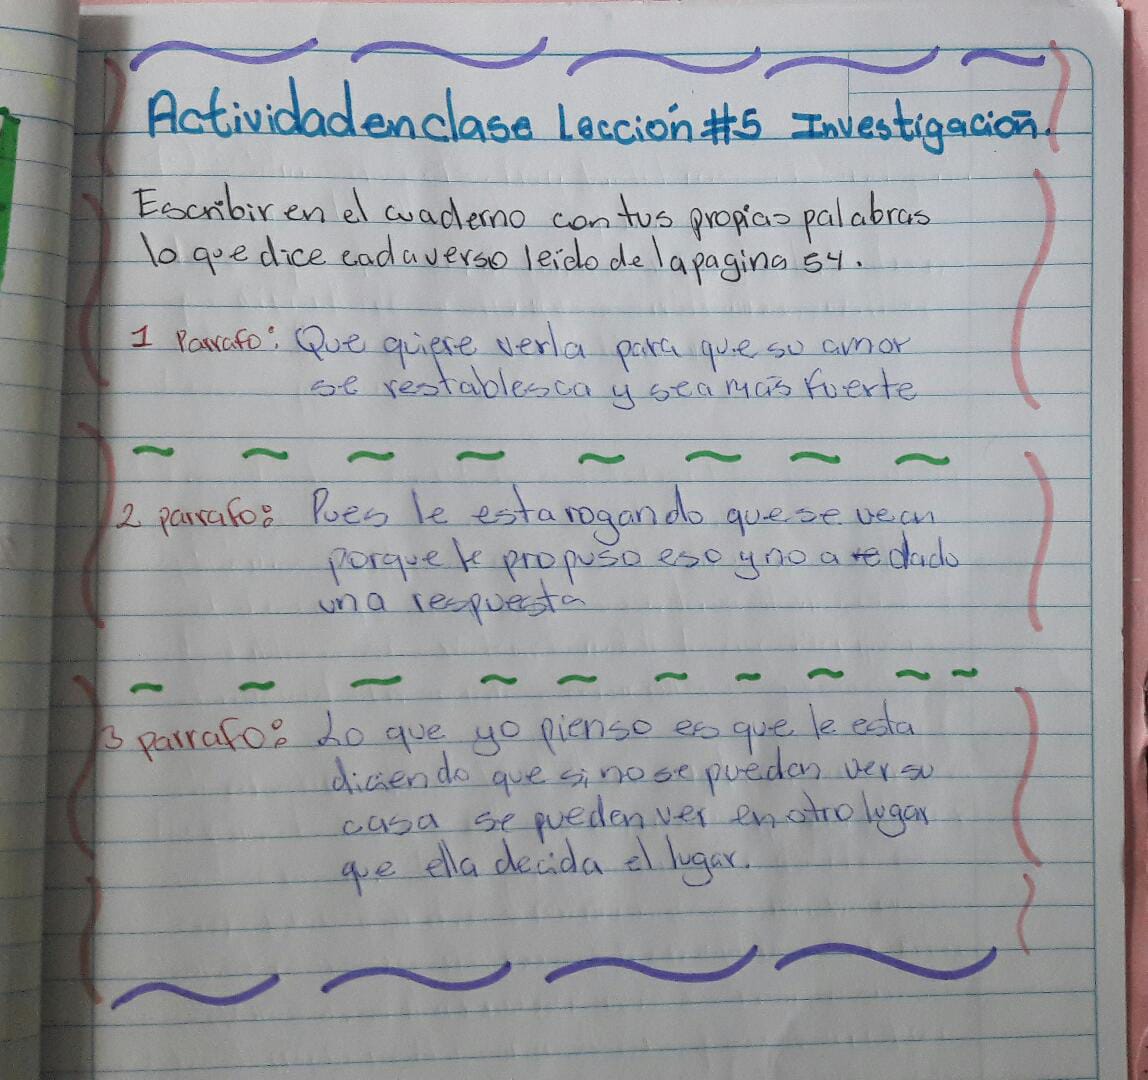 Actividad en clase Lección #5 Investigación.
Escribir en el cuaderno con tus propias palabras
lo que dice cada verso leído de la pagina 54.
1 Parrafo: Que quiere verla para que su amor
se restablesca y sea más fuerte
2 parrafo: Pues le esta rogando que se vean
porque le propuso eso y no a dado
una respuesta
3 parrafo: Lo que yo pienso es que le esta
diciendo que si no se pueden ver su
casa se pueden ver en otro lugar
que ella decida el lugar.